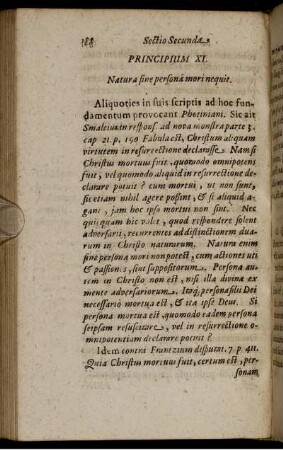 188 Sectio Secunda
PRINCIPIUM XI.
Natura sine personâ mori nequit.
Aliquoties in suis scriptis ad hoc fun-
damentum provocant Photiniani. Sic ait
Smalcius in respons. ad nova monstra parte 3.
cap 21 p. 150 Fabula est, Christum aliquam
virtutem in resurrectione declarasse. Nam si
Christus mortuus fuit, quomodo omnipotens
fuit, vel quomodo aliquid in resurrectione de-
clarare potuit? cum mortui, ut non sunt,
sic etiam nihil agere possint, & si aliquid a-
gant, jam hoc ipso mortui non sint. Nec
quisquam hic valet, quod respondere solent
adversarii, recurrentes ad distinctionem dua-
rum in Christo naturarum. Natura enim
sine persona mori non potest, cum actiones uti
& passiones, sint suppositorum. Persona au-
tem in Christo non est, nisi illa divina ex
mente adversariorum. Itaq; persona filii Dei
necessariò mortua est, & ita ipse Deus. Si
persona mortua est, quomodo eadem persona
seipsam resuscitare, vel in resurrectione o-
mnipotentiam declarare potuit?
Idem contra Frantzium disputat. 7. p. 411.
Quia Christus mortuus fuit, certum est, per-
sonam